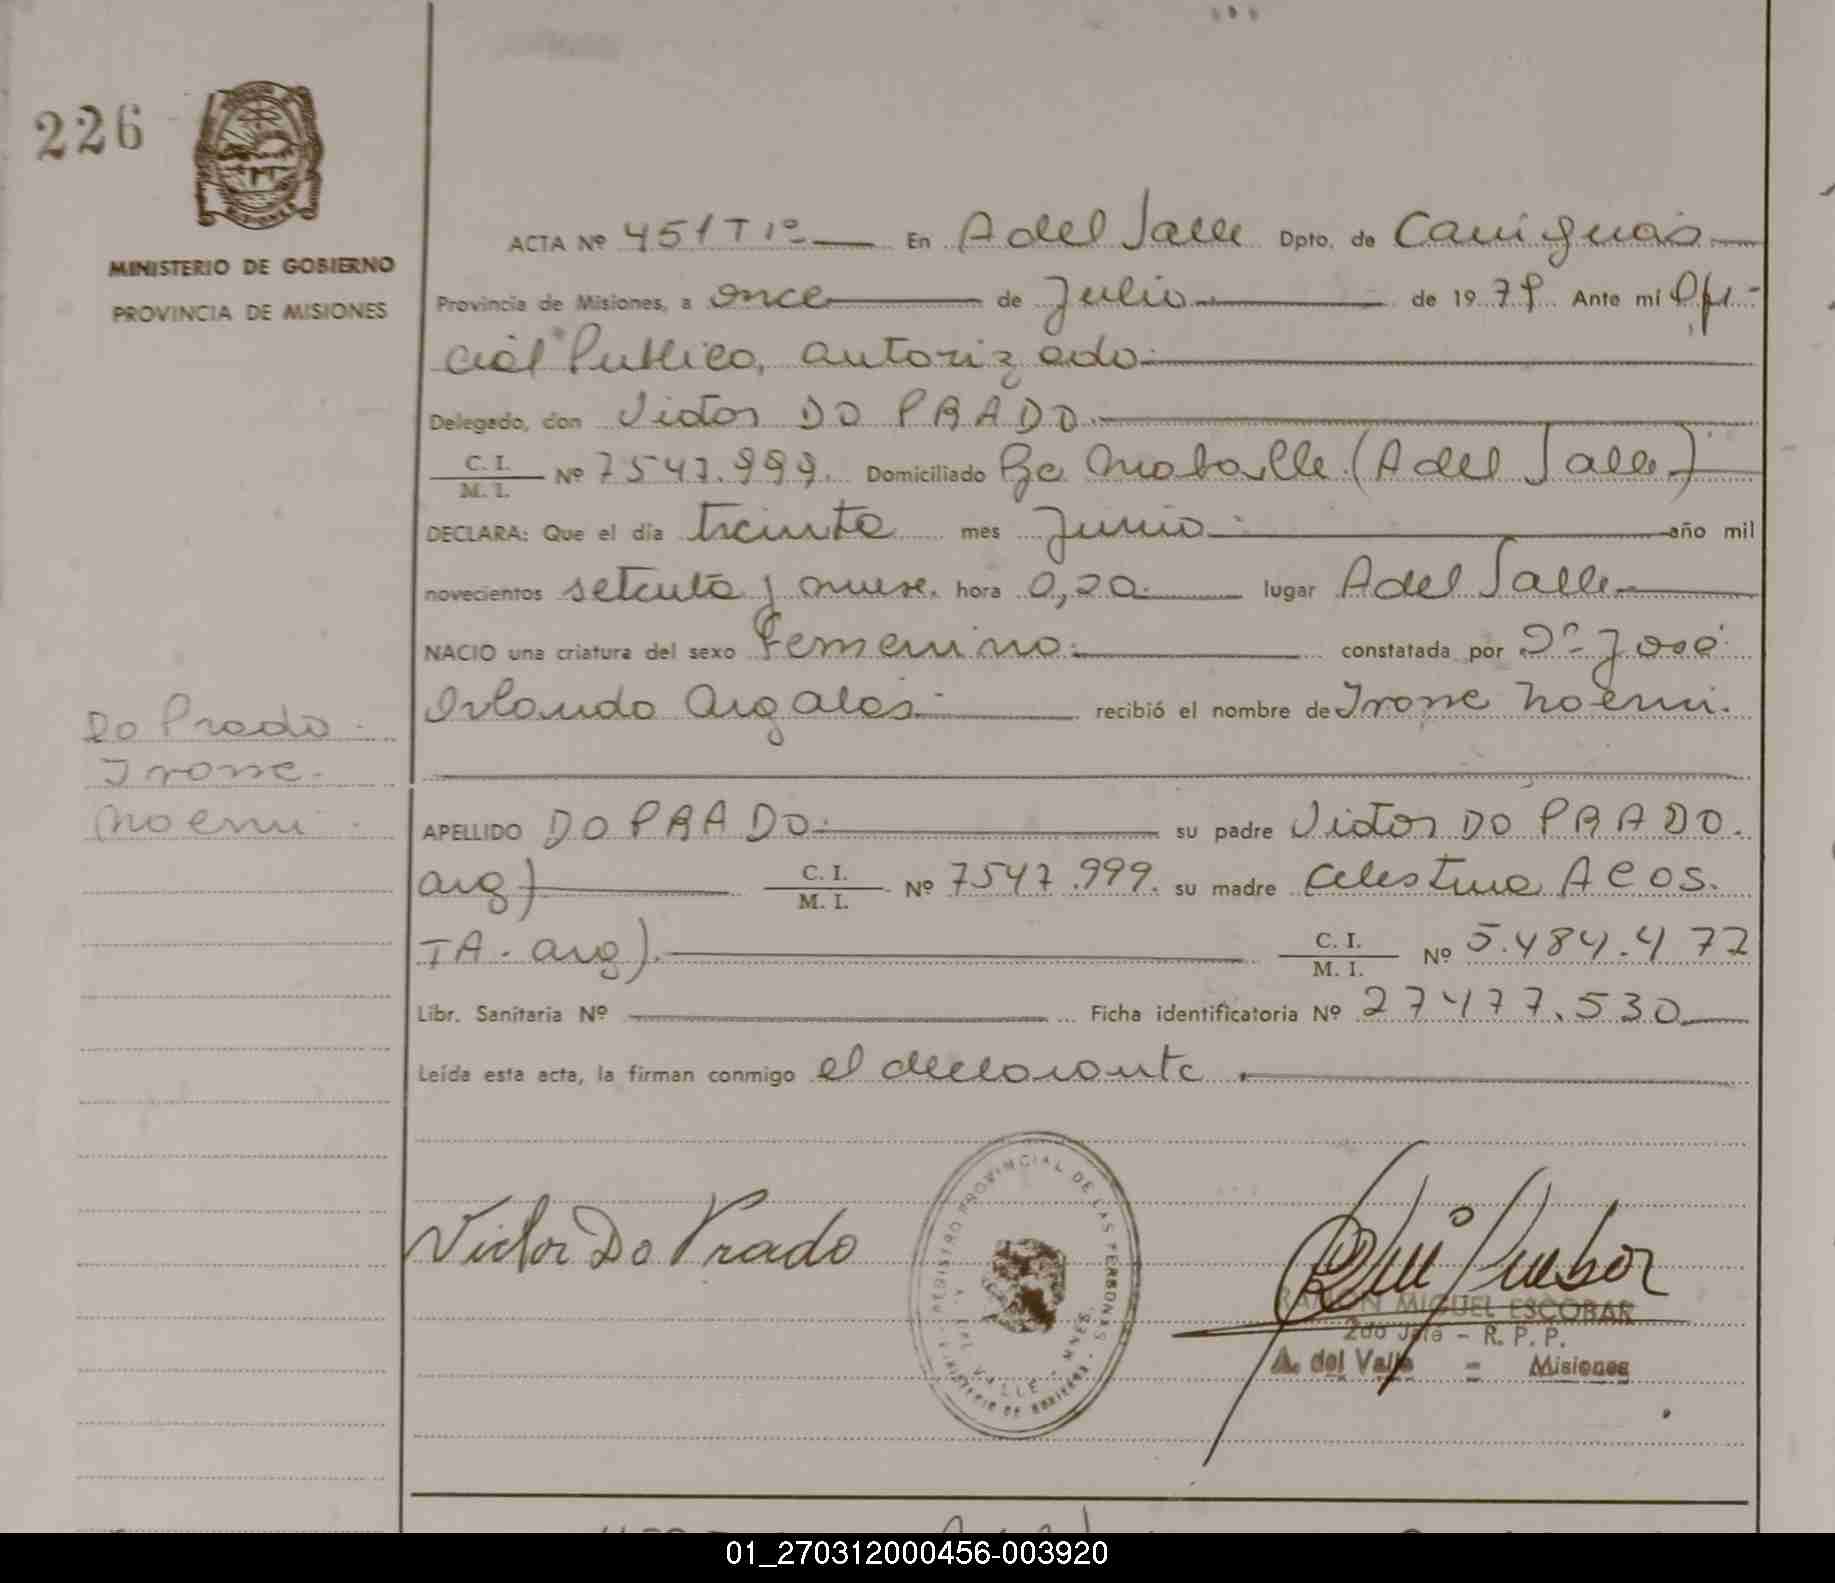 226
MINISTERIO DE GOBIERNO
PROVINCIA DE MISIONES
ACTA Nº 451 T 1º En A del Valle Dpto. de Cainguás
Provincia de Misiones, a once de Julio de 1979 Ante mí Ofi-
cial Publico, autorizado
Delegado, don Victor DO PRADO
C. I. / M. I. Nº 7547.999. Domiciliado (A del Valle)
DECLARA: Que el día treinta mes Junio año mil
novecientos setenta y nueve. hora 0,20 lugar A del Valle
NACIO una criatura del sexo Femenino constatada por Dr José
Orlando Argalas recibió el nombre de Ivone Noemi.
Do Prado
Ivone
Noemi
APELLIDO DO PRADO su padre Victor DO PRADO.
arg) C. I. / M. I. Nº 7547.999. su madre Celestina ACOS
TA. arg). C. I. / M. I. Nº 5.484.472
Libr. Sanitaria Nº Ficha identificatoria Nº 27477.530
Leída esta acta, la firman conmigo el declarante
Victor Do Prado
REGISTRO PROVINCIAL DE LAS PERSONAS
A. DEL VALLE - MNES.
MINISTERIO DE GOBIERNO
RAMON MIGUEL ESCOBAR
2do Jefe - R. P. P.
A. del Valle - Misiones
01_270312000456-003920